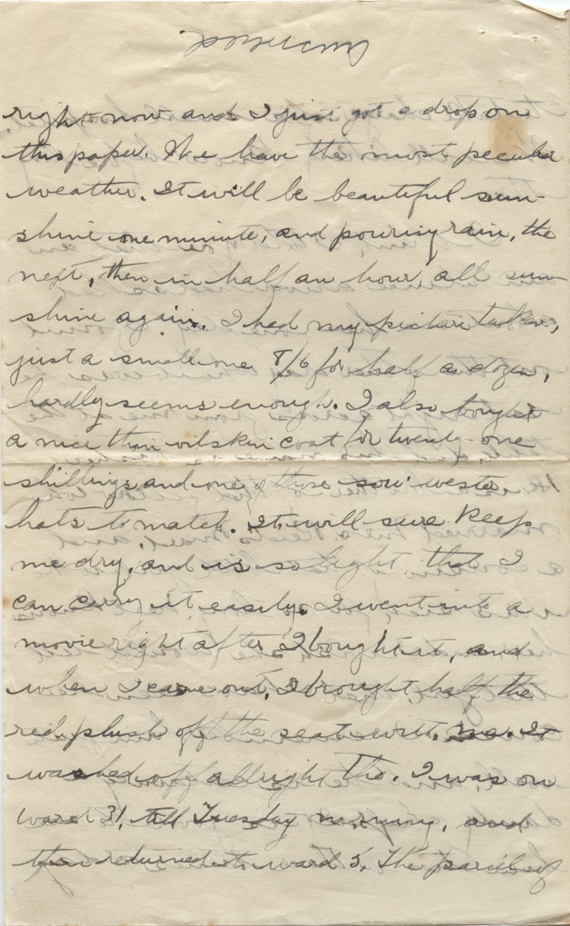 Answered.
right now and I just got a drop on
this paper. We have the most peculiar
weather. It will be beautiful sun-
shine one minute, and pouring rain, the
next, then in half an hour, all sun-
shine again. I had my picture taken,
just a small one 8/6 for half a dozen,
hardly seems enough. I also bought
a nice thin oilskin coat for twenty-one
shillings and one of those sou'wester
hats to match. It will sure keep
me dry, and is so light that I
can carry it easily. I went into a
movie right after I bought it, and
when I came out, I brought half the
red plush off the seat with me. It
washed off allright tho. I was on
ward 31, till Tuesday morning, and
then returned to ward 5. The parcel of